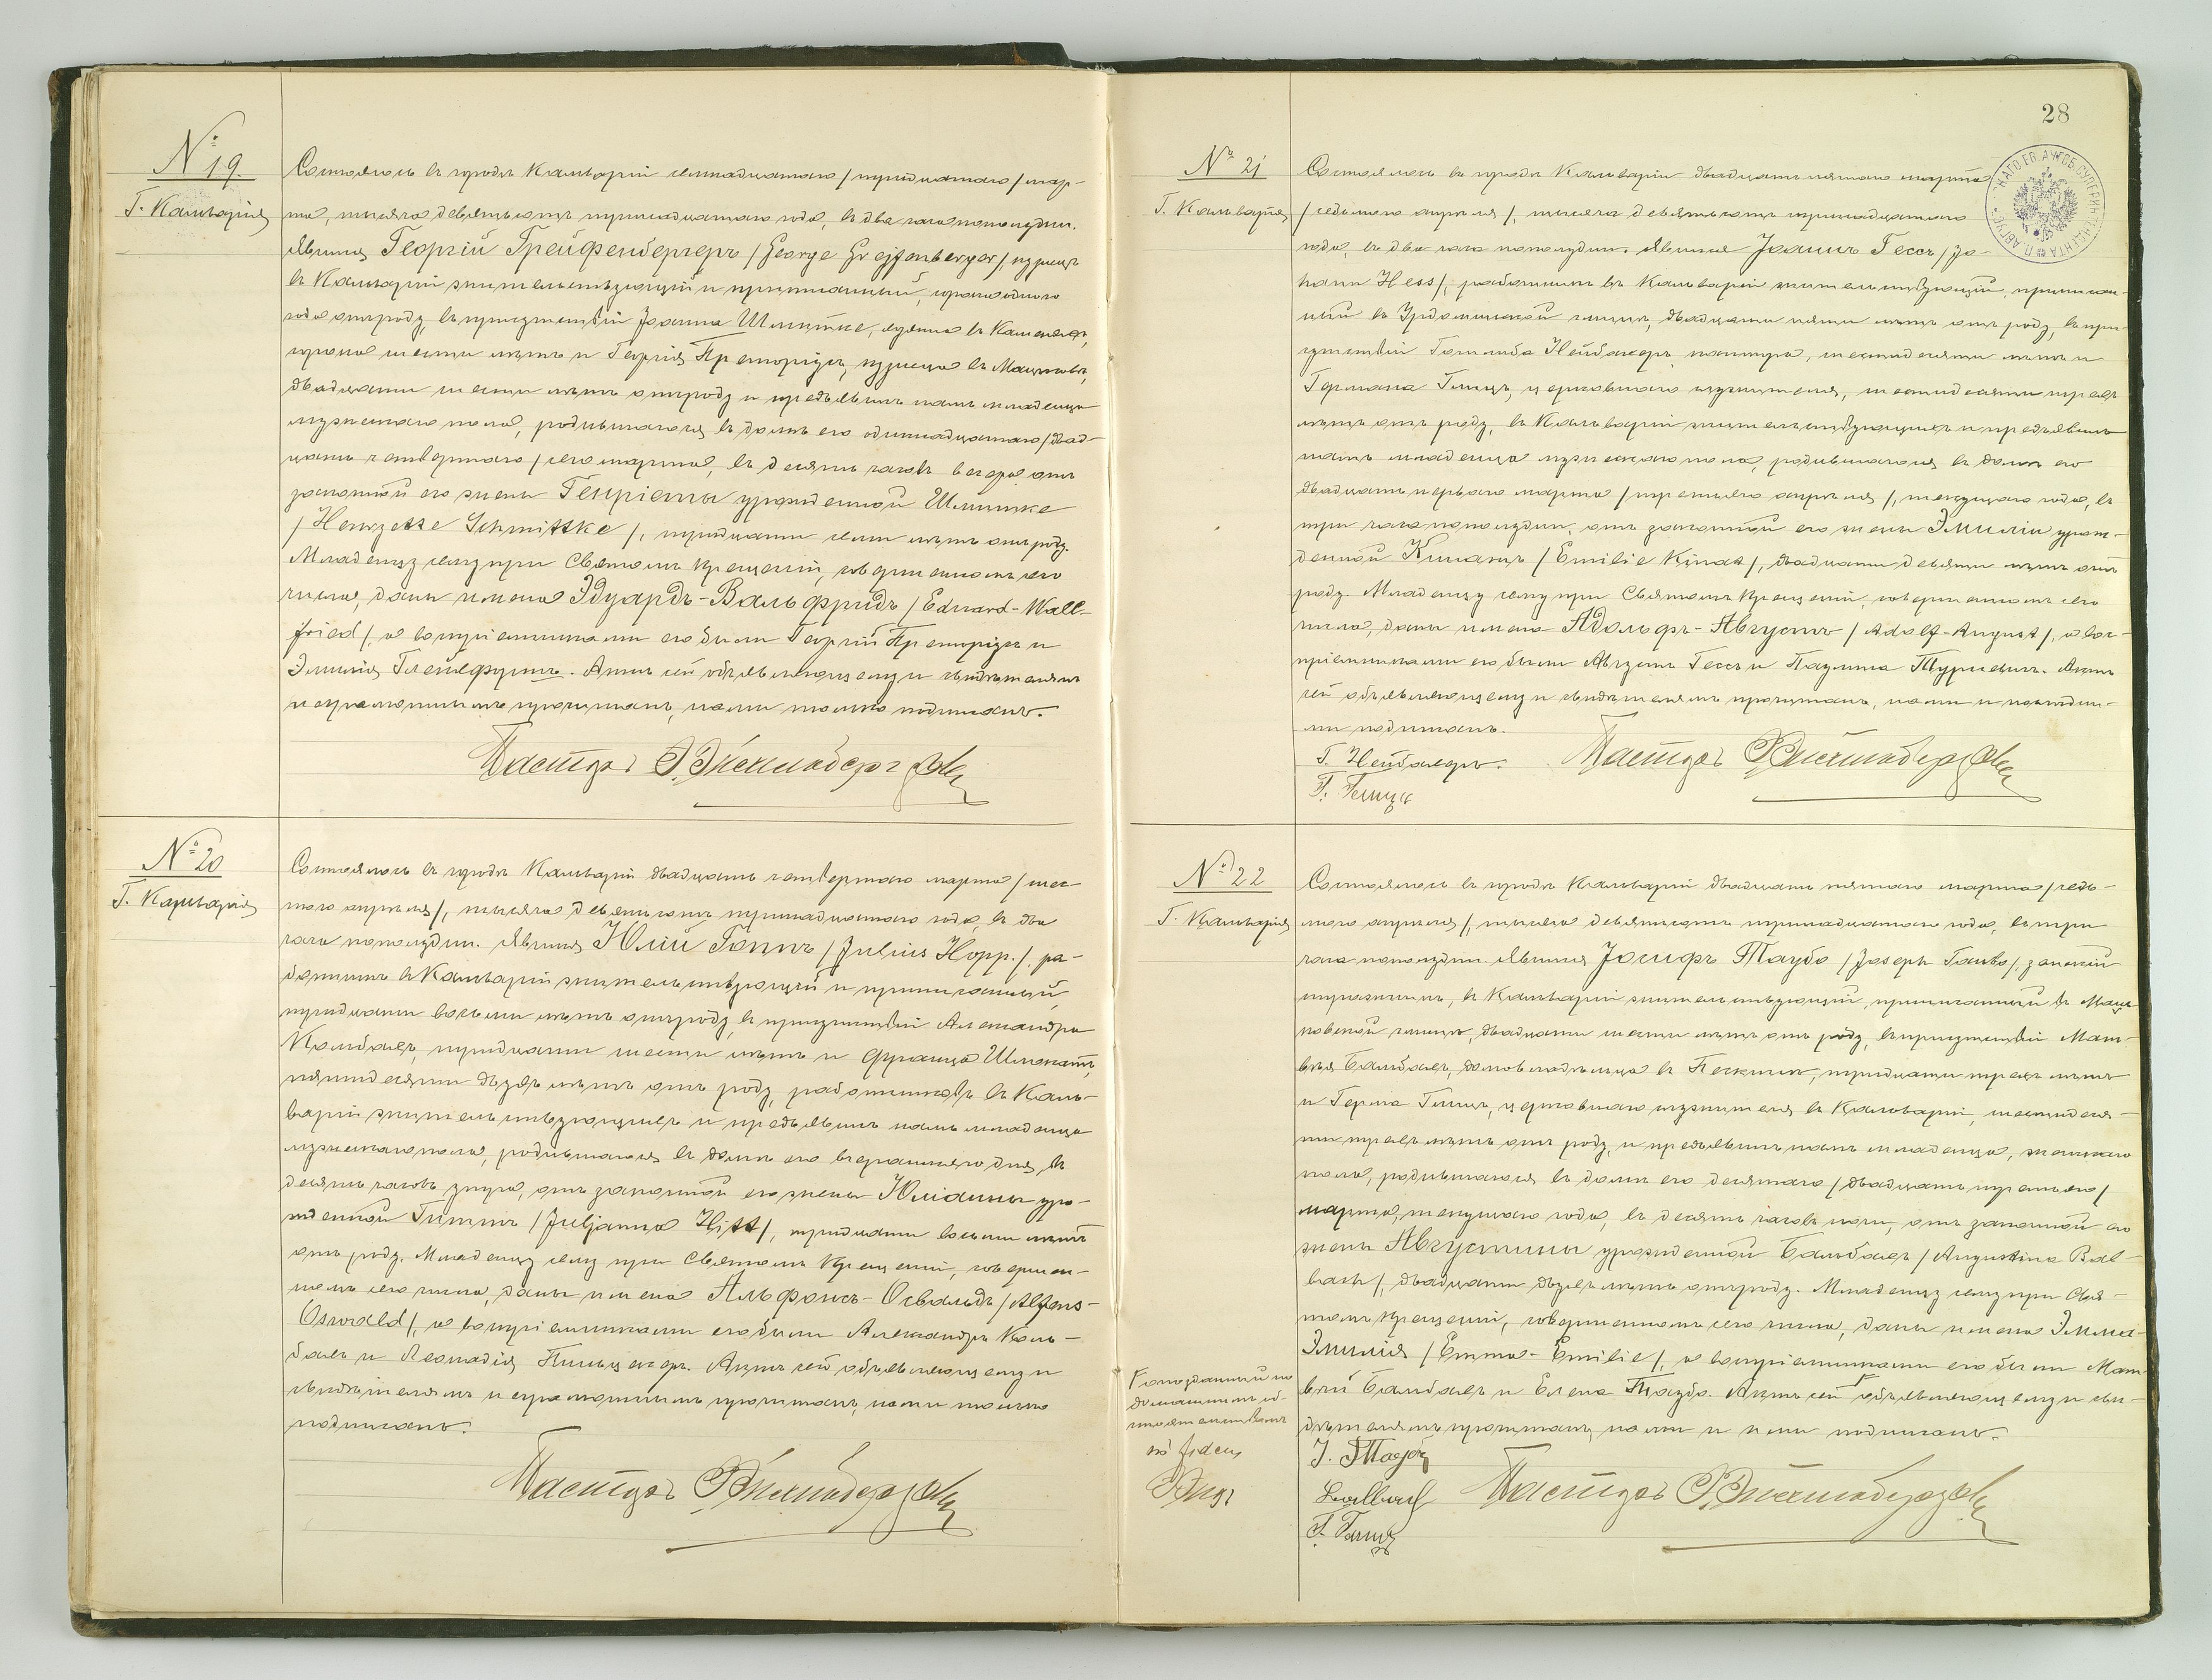 № 19.
Г. Кальварія
Состоялось въ городѣ Кальваріи семнадцатаго /тридцатаго/ мар-
та, тысяча девятьсотъ тринадцатаго года, въ два часа пополудни.
Явился Георгій Грейфенбергеръ /George Greifenberger/, кузнецъ
въ Кальваріи жительствующій и приписанный, сорока одного
года отъ роду, въ присутствіи Іоанна Шмитке,
сорока шести лѣтъ и Георгія Преторіусъ, кузнеца въ
двадцати шести лѣтъ отъ роду и предъявилъ намъ младенца
мужескаго пола, родившагося въ домѣ его одиннадцатаго /двад-
цать четвертаго/ сего марта, въ десять часовъ вечера отъ
законной его жены Генріеты урожденной Шмитке
/Henrzette Schmittke/, тридцати семи лѣтъ отъ роду.
Младенцу сему при Святомъ Крещеніи, совершенномъ сего
числа, даны имена Эдуардъ-Вальфридъ /Eduard-Wall-
fried/, а воспріемниками его были Георгій Преторіусъ и
Эмилія . Актъ сей объявляющему и свидѣтелямъ
неграмотнымъ прочитанъ, нами только подписанъ.
Пасторъ
№ 20
Г. Кальварія
Состоялось въ городѣ Кальваріи двадцать четвертаго марта /шес-
таго апрѣля/, тысяча девятьсотъ тринадцатаго года, въ два
часа пополудни. Явился Юлій Гоппъ /Julius Hopp./, ра-
ботникъ въ Кальваріи жительствующій и приписанный,
тридцати восьми лѣтъ отъ роду, въ присутствіи Александра
Кольбахъ, тридцати шести лѣтъ и Франца
пятидесяти двухъ лѣтъ отъ роду, работниковъ въ Каль-
варіи жительствующихъ и предъявилъ намъ младенца
мужескаго пола, родившагося въ домѣ его вчерашняго дня, въ
десять часовъ утра, отъ законной его жены Юліанны уро-
жденной Гиттъ /Juljanna Hitt/, тридцати восьми лѣтъ
отъ роду. Младенцу сему при Святомъ Крещеніи, совершен-
номъ сего числа, даны имена Альфонсъ-Освальдъ /Alfons-
Oswald/, а воспріемниками его были Александръ Коль-
бахъ и Леокадія . Актъ сей объявляющему и
свидѣтелямъ неграмотнымъ прочитанъ, нами только
подписанъ.
Пасторъ
28
№ 21
Г. Кальварія
Состоялось въ городѣ Кальваріи двадцать пятаго марта
/седьмого апрѣля/, тысяча девятьсотъ тринадцатаго
года, въ два часа пополудни. Явился Іоаннъ Гессъ /Jo-
hann Hess/, работникъ въ Кальваріи жительствующій, приписан-
ный въ гминѣ, двадцати пяти лѣтъ отъ роду, въ при-
сутствіи Готлиба Нейбахеръ, кантора, шестидесяти лѣтъ и
Германа , церковнаго служителя, шестидесяти трехъ
лѣтъ отъ роду, въ Кальваріи жительствующихъ и предъявилъ
намъ младенца мужескаго пола, родившагося въ домѣ его
двадцать перваго марта /третьяго апрѣля/, текущаго года, въ
три часа пополудни, отъ законной его жены Эмиліи урож-
денной Кинатъ /Emilie Kinat/, двадцати девяти лѣтъ отъ
роду. Младенцу сему при Святомъ Крещеніи, совершенномъ сего
числа, даны имена Адольфъ-Августъ /Adolf-August/, а вос-
пріемниками его были Августъ Гессъ и Паулина . Актъ
сей объявляющему и свидѣтелямъ прочитанъ, нами и послѣдни-
ми подписанъ.
Г. Нейбахеръ.
Пасторъ
№ 22
Г. Кальварія
Состоялось въ городѣ Кальваріи двадцать пятаго марта /седь-
мого апрѣля/, тысяча девятьсотъ тринадцатаго года, въ три
часа пополудни. Явился Іосифъ Таубе /Joseph Taube/, земскій
стражникъ, въ Кальваріи жительствующій, приписанный въ
гминѣ, двадцати шести лѣтъ отъ роду, въ присутствіи Мат-
вѣя Бальбахъ, домовладѣльца въ , тридцати трехъ лѣтъ
и Германа , церковнаго служителя въ Кальваріи, шестидеся-
ти трехъ лѣтъ отъ роду, и предъявилъ намъ младенца, женскаго
пола, родившагося въ домѣ его десятаго /двадцать третьяго/
марта, текущаго года, въ десять часовъ ночи, отъ законной его
жены Августины урожденной Бальбахъ /Augustina Bal-
bach/, двадцати двухъ лѣтъ отъ роду. Младенцу сему при Свя-
томъ Крещеніи, совершенномъ сего числа, даны имена Эмма-
Эмилія /Emma-Emilie/, а воспріемниками его были Мат-
вѣй Бальбахъ и Елена Таубе. Актъ сей объявляющему и сви-
дѣтелямъ прочитанъ, нами и ими подписанъ.
Г опозданный по
домашнимъ об-
стоятельствамъ
І. Таубе
Balbach
Пасторъ